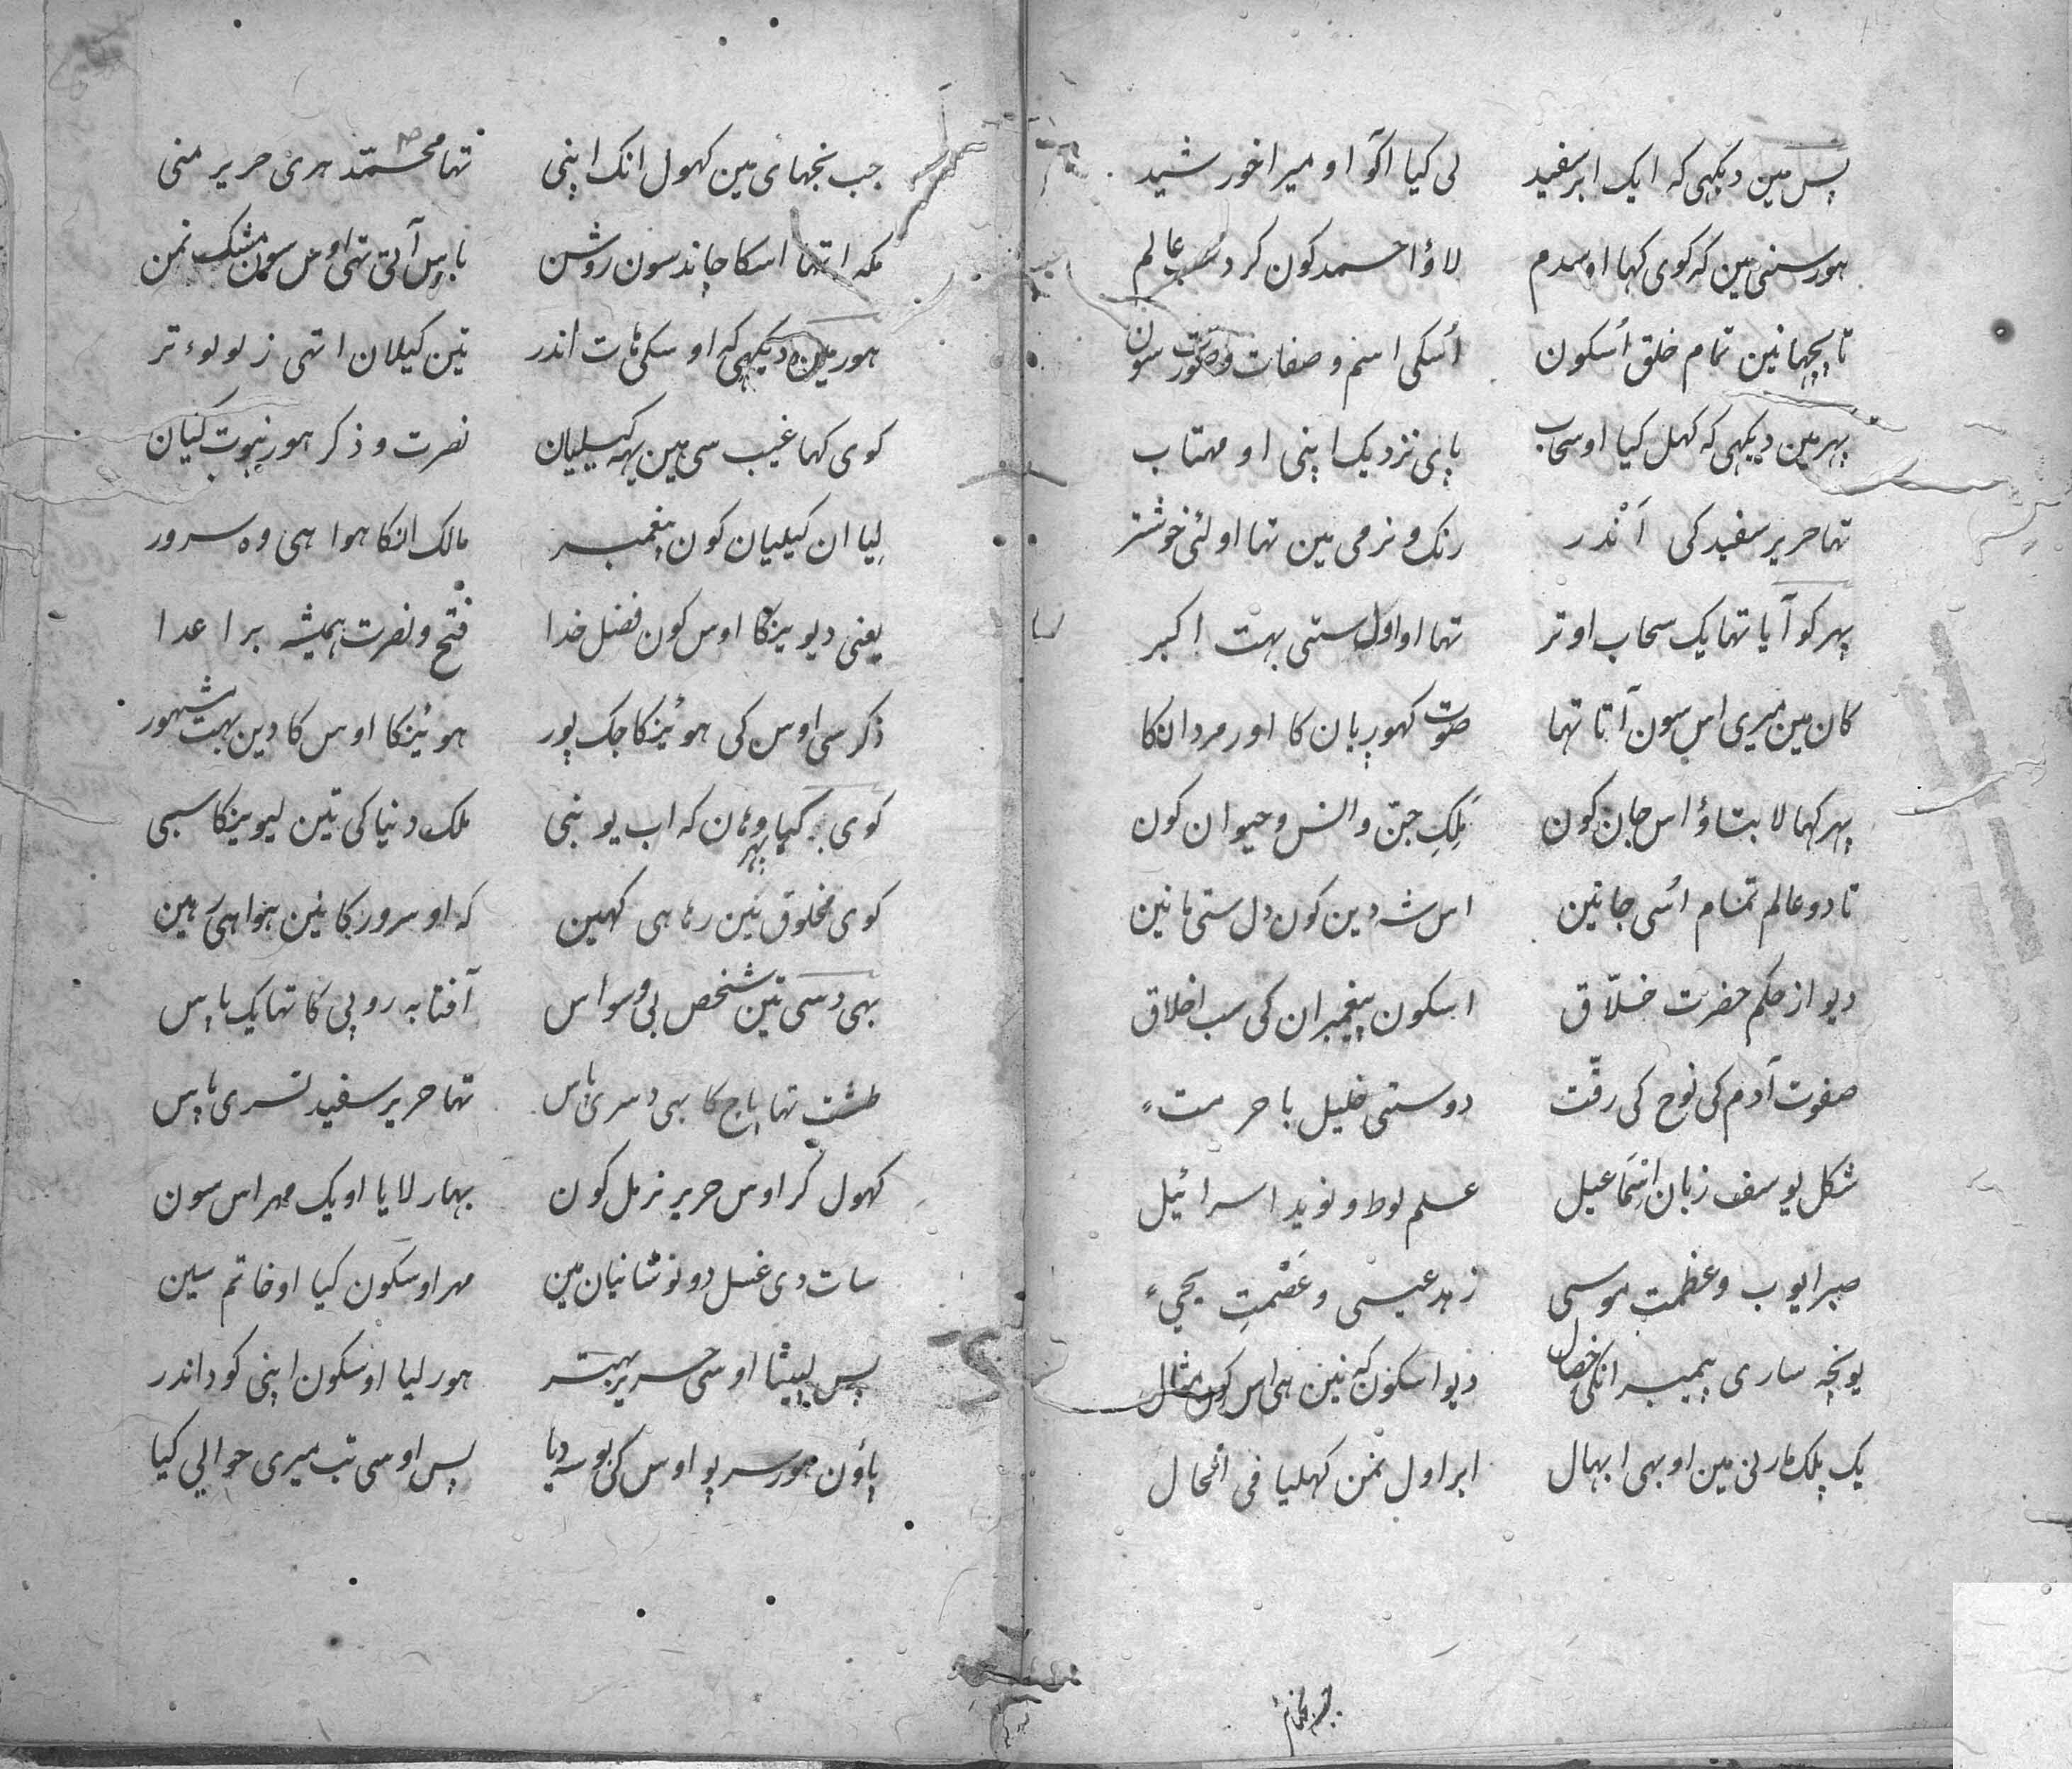 پس مین دیکهی که ایک ابر سفید لی کیا اکو او میرا خورشید
هور سنی مین که کوی کها اوسدم لاؤ احمد کون کرد عالم
تا پچهانین تمام خلق اُسکون اُسکی اسم و صفات و صورت سون
پهر مین دیکهی که کهل کیا او سحاب پایی نزدیک اپنی او مهتاب
تها حریر سفید کی اَنْدر رنک و نرمی مین تها او لئی خوشتر
پهر کو آیا تها یک سحاب اوتر تها او اول ستی بهت اکبر
کان مین میری اس سون آتا تها صوت کهورپان کا اور مردان کا
پهر کها لا بتاؤ اس جان کون مَلکِ جن و انس و حیوان کون
تا دو عالم تمام اسی جانین اس شه دین کون دل ستی مانین
دیو از حکم حضرت خلّاق اسکون پیغمبران کی سب اخلاق
صفوت آدم کی نوح کی رقّت دوستی خلیل با حرمت
شکل یوسف زبان اسماعیل علم لوط و نوید اسرائیل
صبر ایوب و عظمتِ موسی زهد عیسی و عصمتِ یحیی
یونچه ساری پیمبر انکی خصال دیو اسکون که نین هی اس کون مثال
یک پلک مارنی مین او بهی ابهال ابر اول نمن کهلیا فی الحال
جب بنجهای مین کهول انک اپنی تها محمّد هری حریر منی
مکه اتها اسکا چاند سون روشن باس آتی تهی اوس سون مشک نمن
هور مین دیکهی که اوسکی هات اندر تین کیلان اتهی ز لولوء تر
کوی کها غیب سی هین یهه کیلیان نصرت و ذکر هور نبوت کیان
لِیا ان کیلیان کون پیغمبر مالک انکا هوا هی وه سرور
یعنی دیوینکا اوس کون فضل خدا فتح و نصرت همیشه بر اعدا
ذکر سی اوس کی هوئینکا جک پور هوئینکا اوس کا دین بهت مشهور
کوی کهیا پهر وهان که اب یو نبی ملک دنیا کی تین لیوینکا سبی
کوی مخلوق نین رها هی کهین که او سرور کا نین هوا هی رهین
بهی دسی تین شخص بی وسواس آفتابه روپی کا تها یک پاس
طشت تها پاچ کا بهی دسری پاس تها حریر سفید تسری پاس
کهول کر اوس حریر نرمل کون بهار لایا او یک مهر اس سون
سات دی غسل دونو شانیان مین مهر اوسکون کیا او خاتم سین
پس لپیٹا اوسی حریر بهتر هور لیا اوسکون اپنی کود اندر
پاؤن هور سر پو اوس کی بوسه دیا پس اوسی تب میری حوالی کیا